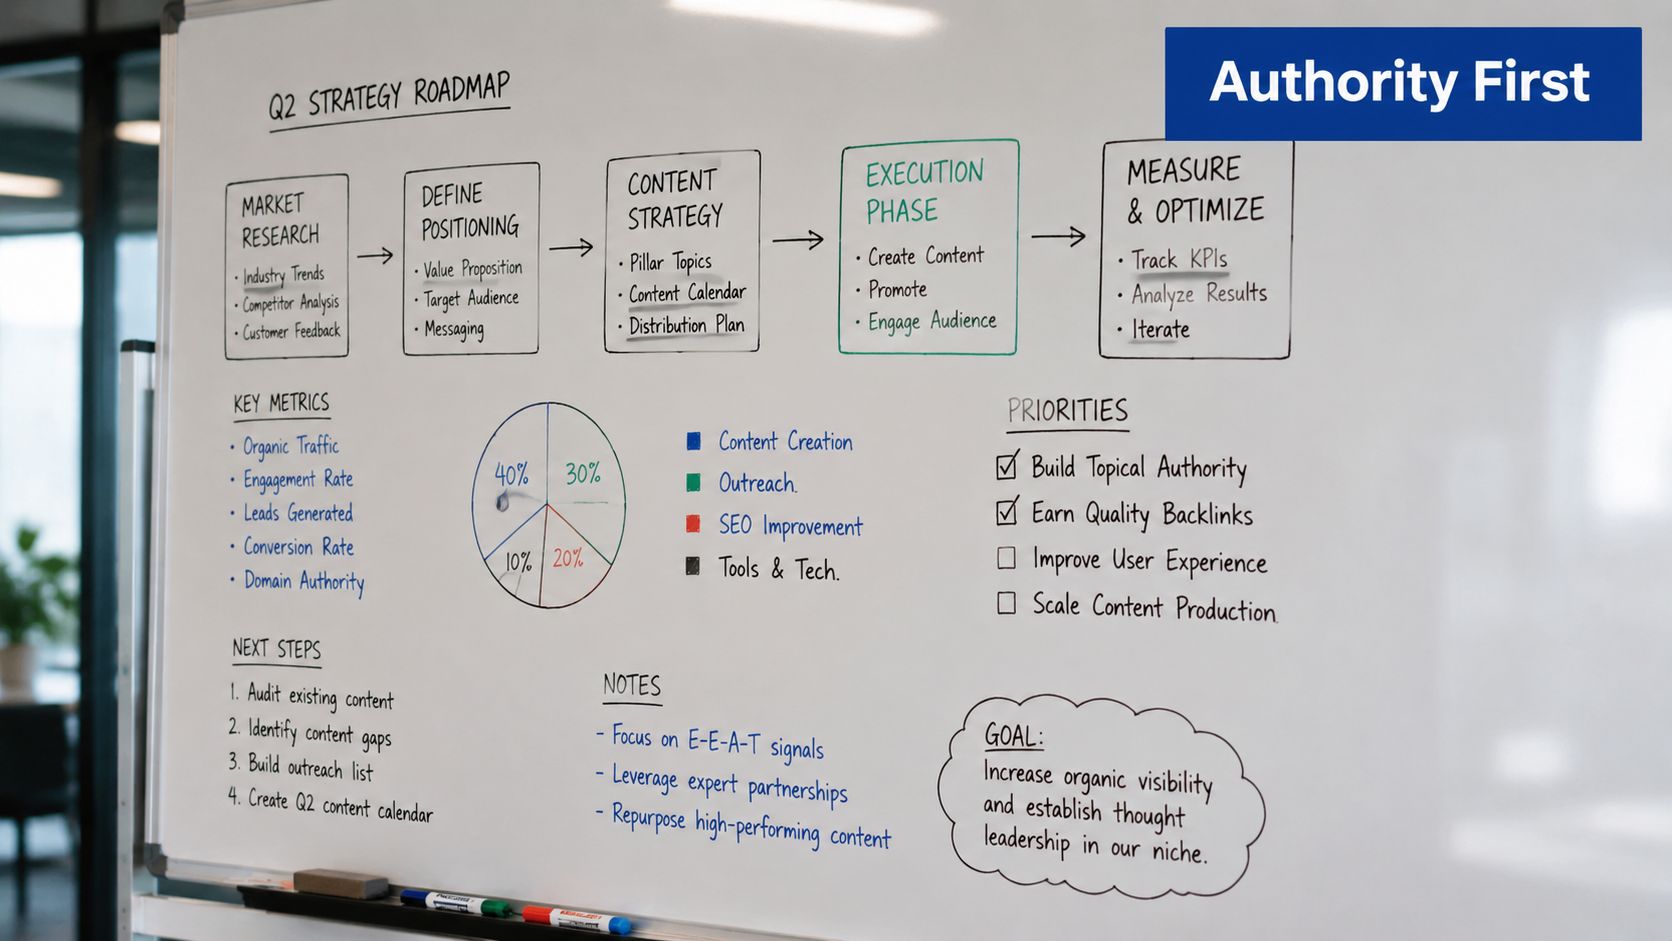 Authority First
Q2 STRATEGY ROADMAP
MARKET
RESEARCH
• Industry Trends
• Competitor Analysis
• Customer Feedback
DEFINE
POSITIONING
• Value Proposition
• Target Audience
• Messaging
CONTENT
STRATEGY
• Pillar Topics
• Content Calendar
• Distribution Plan
EXECUTION
PHASE
• Create Content
• Promote
• Engage Audience
MEASURE
& OPTIMIZE
• Track KPIs
• Analyze Results
• Iterate
KEY METRICS
• Organic Traffic
• Engagement Rate
• Leads Generated
• Conversion Rate
• Domain Authority
40%
30%
10%
20%
Content Creation
Outreach.
SEO Improvement
Tools & Tech.
PRIORITIES
Build Topical Authority
Earn Quality Backlinks
Improve User Experience
Scale Content Production.
NEXT STEPS
1. Audit existing content
2. Identify content gaps
3. Build outreach list
4. Create Q2 content calendar
NOTES
- Focus on E-E-A-T signals
- Leverage expert partnerships
- Repurpose high-performing content
GOAL:
Increase organic visibility
and establish thought
leadership in our niche.